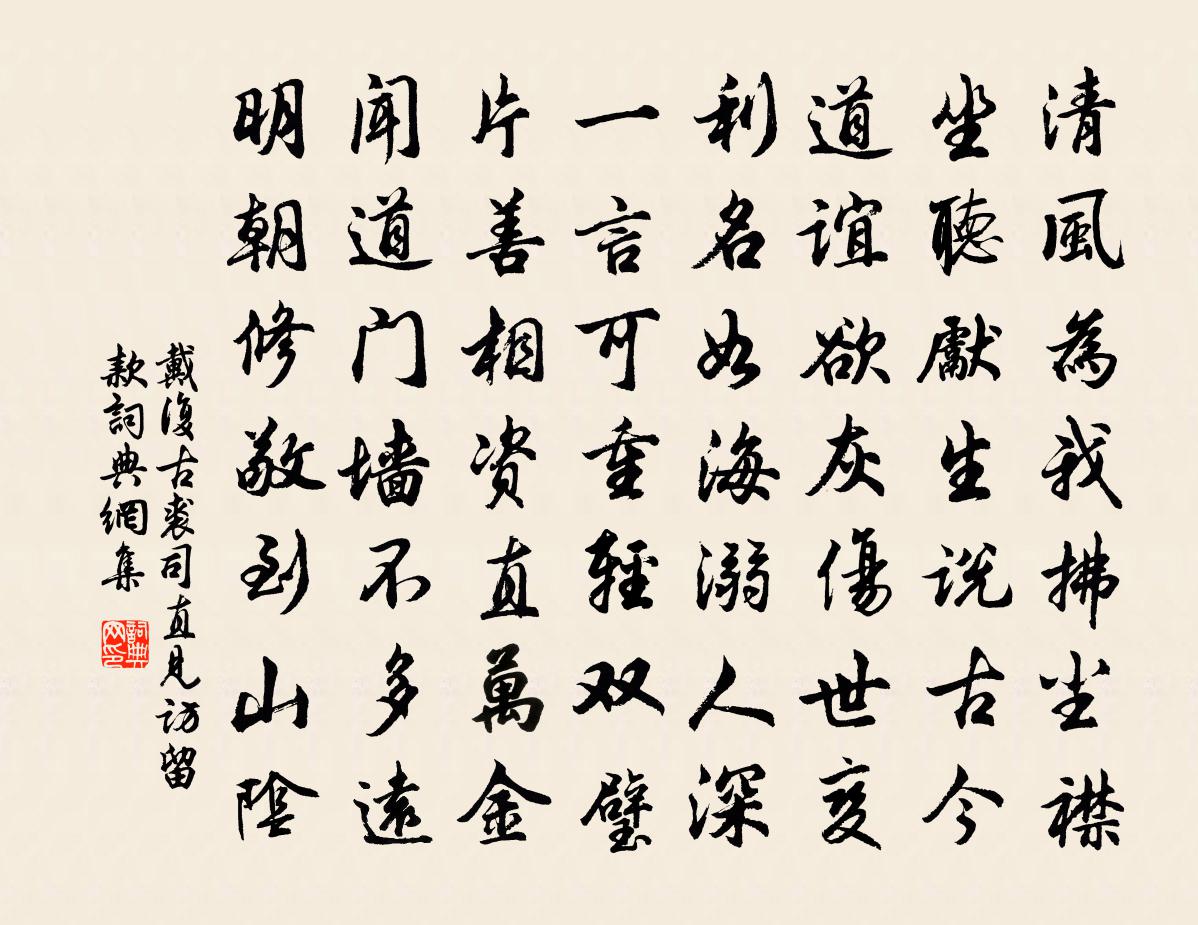 清風為我拂尘襟
坐聽獻生说古今
道谊欲灰傷世变
利名如海溺人深
一言可重輕双璧
片善相資直萬金
闻道门墙不多遠
明朝修敬到山陰
戴復古裘司直見访留
款詞典網集
詞典网印